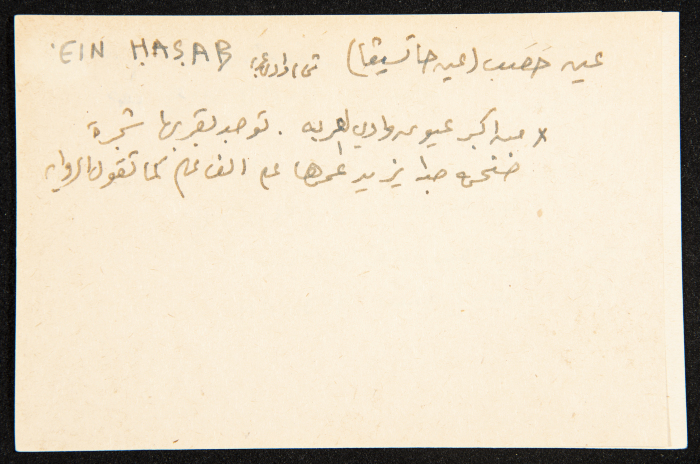 عين حَصَب (عين حاتسيقا) 'EIN HASAB
x من اكبر عيون وادي العربه . توجد بقربها شجرة
ضخمه جدا يزيد عمرها عن الف عام كما تقول الروايه